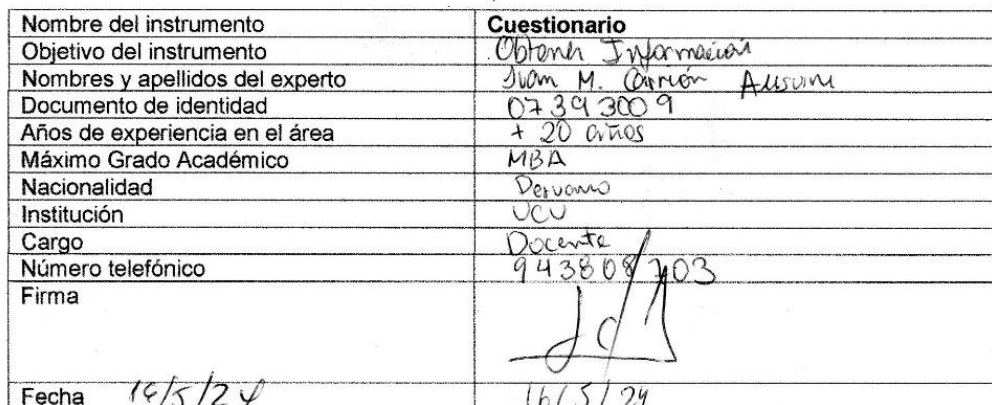 Nombre del instrumento Cuestionario
Objetivo del instrumento Obtener Información
Nombres y apellidos del experto Juan M. Carrión
Documento de identidad 07393009
Años de experiencia en el área + 20 años
Máximo Grado Académico MBA
Nacionalidad Peruano
Institución UCV
Cargo Docente
Número telefónico 943808703
Firma
Fecha 16/5/24 16/5/24